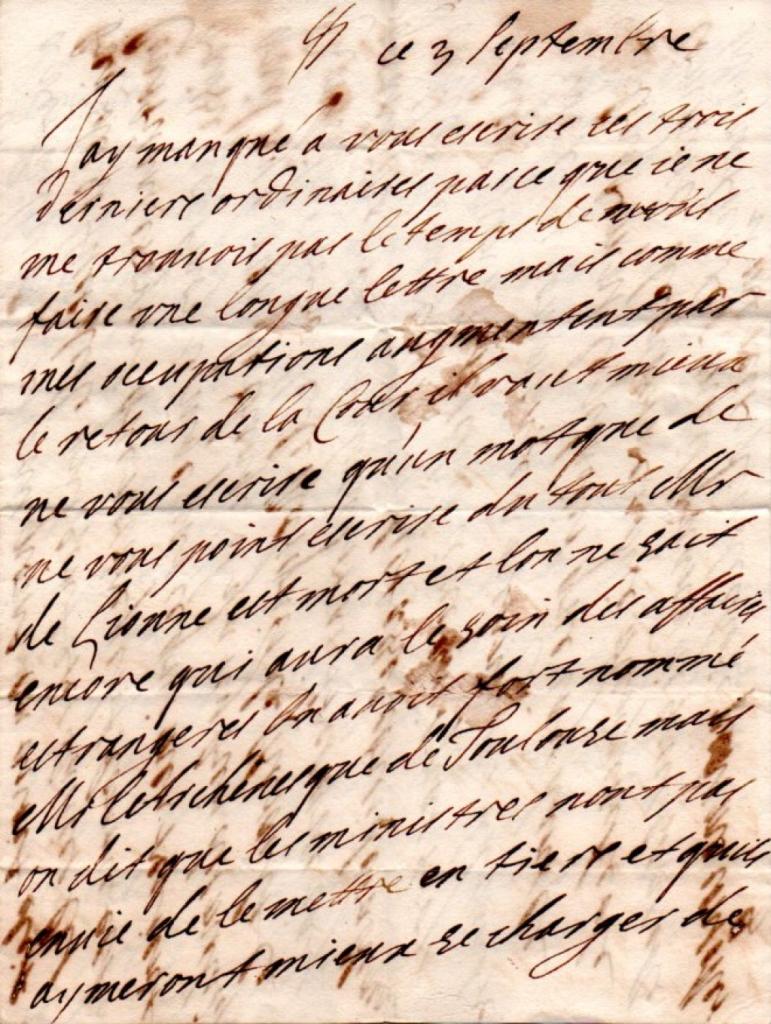 ce 3 septembre
Jay manqué a vous escrire ces trois
derniers ordinaires parce que ie ne
me trouuois pas le temps de vous
faire vne longue lettre mais comme
mes occupations augmentent par
le retour de la Cour il vaut mieux
ne vous escrire qu'un mot que de
ne vous point escrire du tout Mr
de Lionne est mort et lon ne sait
encore qui aura le soin des affaires
estrangeres On auoit fort nommé
Mr l'Archeuesque de Toulouse mais
on dit que les ministres nont pas
enuie de le mettre en tiers et quils
aymeront mieux se charger de